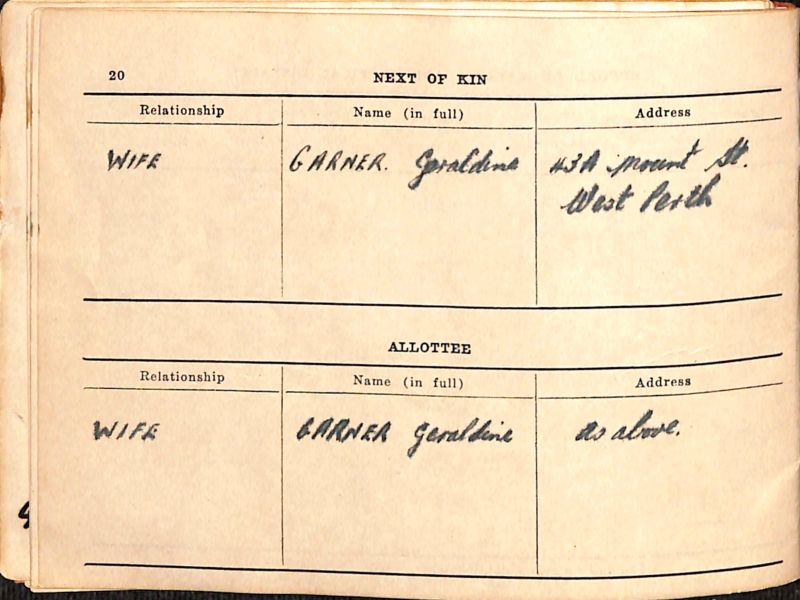 20
NEXT OF KIN
Relationship Name (in full) Address
WIFE GARNER. Geraldine 43A Mount St.
West Perth
ALLOTTEE
Relationship Name (in full) Address
WIFE GARNER Geraldine as above.